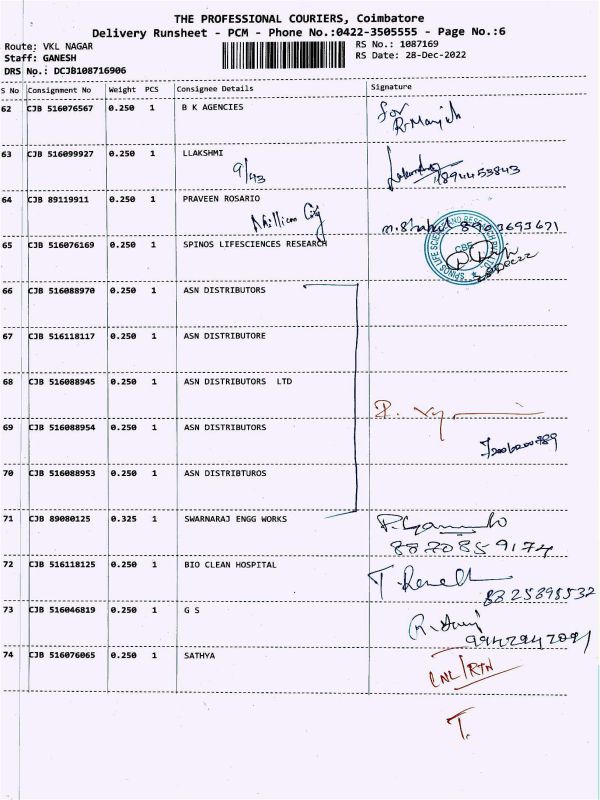 THE PROFESSIONAL COURIERS, Coimbatore
Delivery Runsheet - PCM - Phone No.:0422-3505555 - Page No.:6
Route: VKL NAGAR RS No.: 1087169
Staff: GANESH RS Date: 28-Dec-2022
DRS No.: DCJB108716906
S No Consignment No Weight PCS Consignee Details Signature
62 CJB 516076567 0.250 1 B K AGENCIES for
63 CJB 516099927 0.250 1 LLAKSHMI
9/93 8894453843
64 CJB 89119911 0.250 1 PRAVEEN ROSARIO
City m. Shahul 8903693671
65 CJB 516076169 0.250 1 SPINOS LIFESCIENCES RESEARCH
CBE
66 CJB 516088970 0.250 1 ASN DISTRIBUTORS
67 CJB 516118117 0.250 1 ASN DISTRIBUTORE
68 CJB 516088945 0.250 1 ASN DISTRIBUTORS LTD
69 CJB 516088954 0.250 1 ASN DISTRIBUTORS
70 CJB 516088953 0.250 1 ASN DISTRIBTUROS
71 CJB 89080125 0.325 1 SWARNARAJ ENGG WORKS
8870859174
72 CJB 516118125 0.250 1 BIO CLEAN HOSPITAL
8825898532
73 CJB 516046819 0.250 1 G S
9942942091
74 CJB 516076065 0.250 1 SATHYA
CNL/RTN
T.